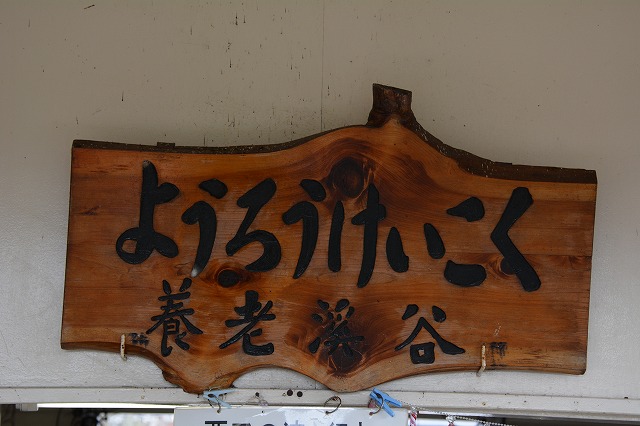 ようろうけいこく
養老溪谷